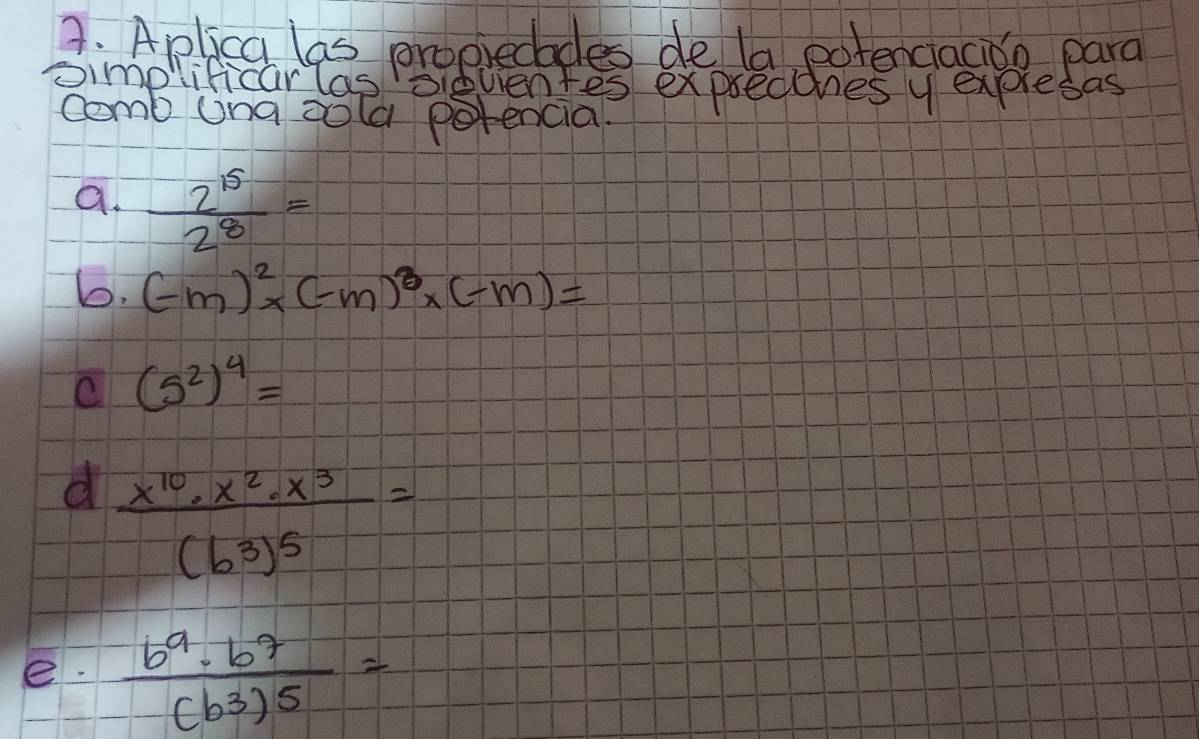 7. Aplica las propiedades de la potenciación para
simplificar las siguientes expreciones y expresas
como una sola potencia.
a. 2^15 / 2^8 =
b. (-m)^2 x (-m)^3 x (-m) =
c (5^2)^4 =
d x^10 . x^2 . x^3 / (b^3)^5 =
e. b^9 . b^7 / (b^3)^5 =